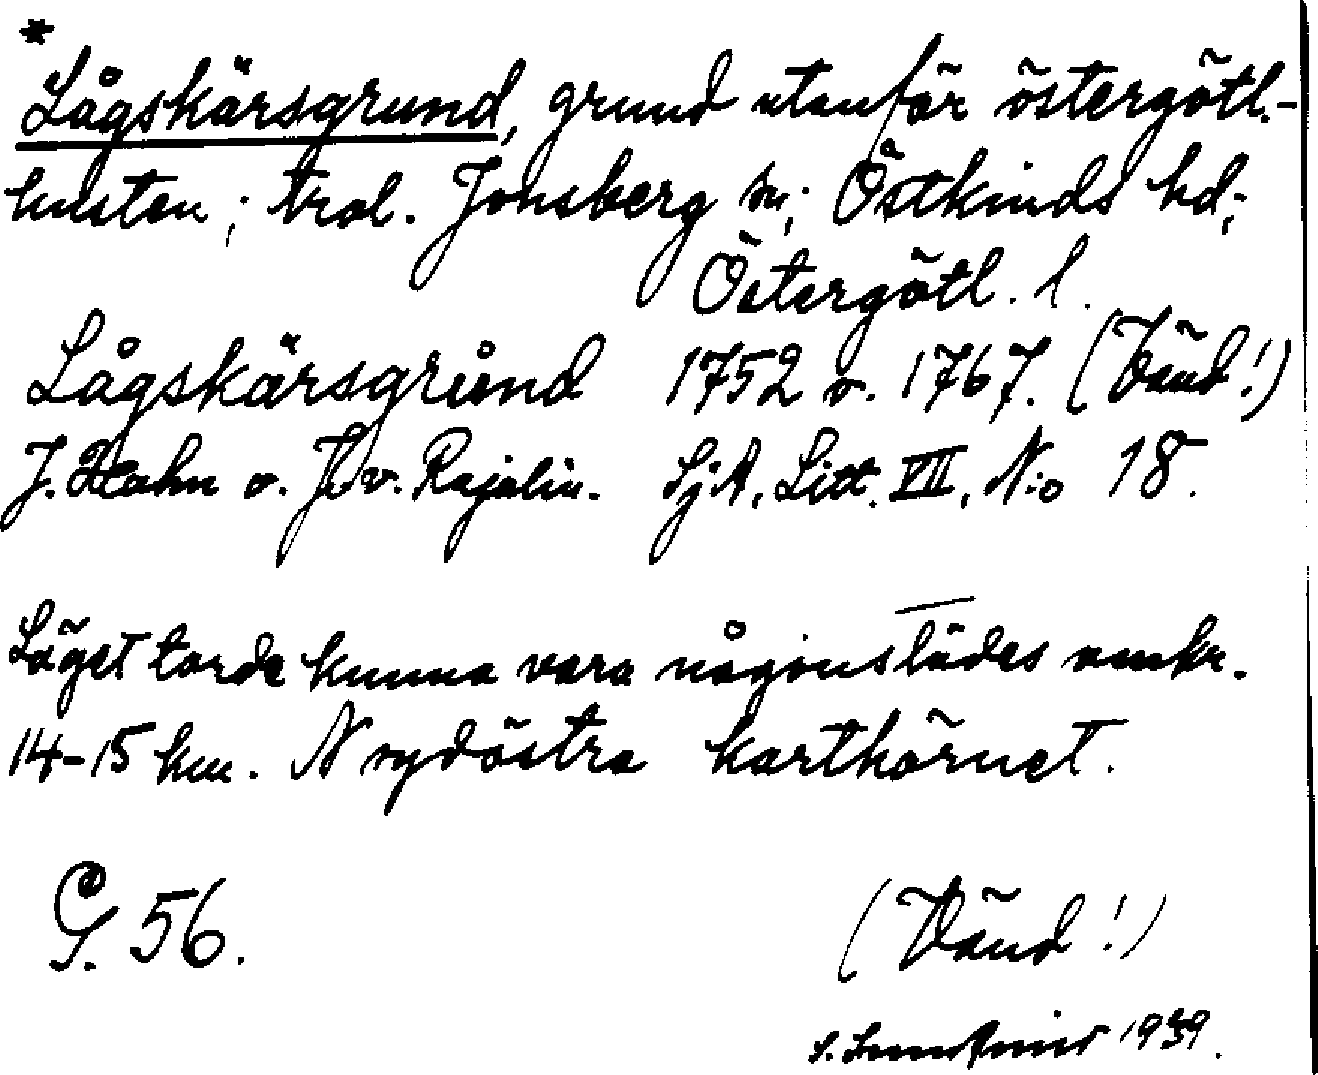 *
Lågskärsgrund, grund utanför östergötl.-
kusten; trol. Jonsberg sn; Östkinds hd;
Östergötl. l.
Lågskärsgrund 1752 o. 1767. (Vänd!)
J. Hahn o. J. v. Rajalin. SjA, Litt. VII, N:o 18.
Läget torde kunna vara någonstädes omkr.
14-15 km. N sydöstra karthörnet.
G. 56. (Vänd!)
1939.